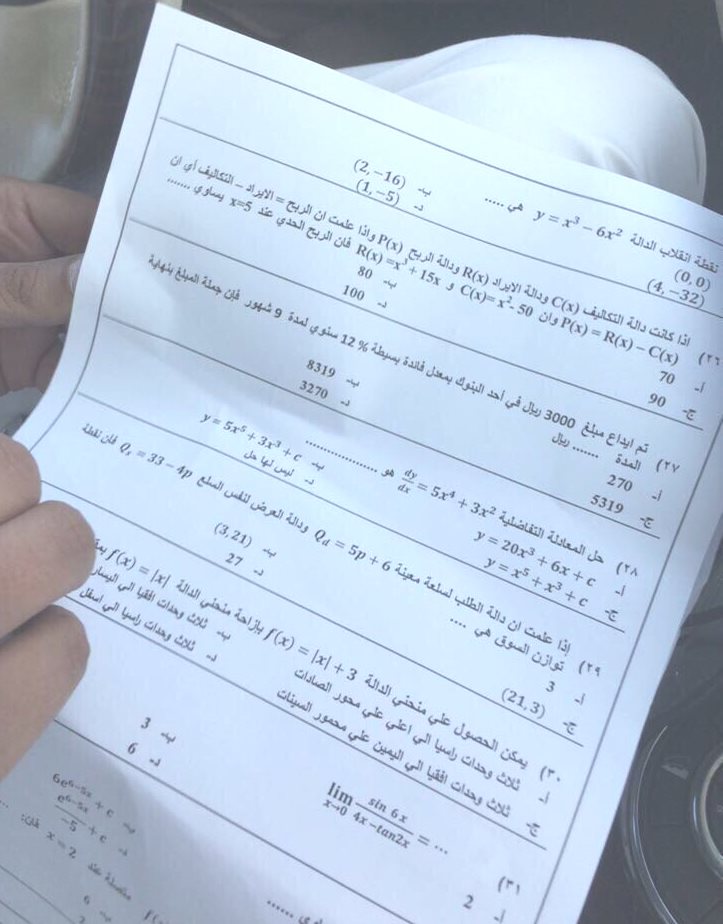 نقطة انقلاب الدالة y = x³ − 6x² هي .....
(0, 0) ب- (2, −16)
(4, −32) د- (1, −5)
٢٦) اذا كانت دالة التكاليف C(x) ودالة الايراد R(x) ودالة الربح P(x) واذا علمت ان الربح = الايراد – التكاليف أي ان
P(x) = R(x) − C(x) وان C(x)= x²- 50 و R(x) =x³+ 15x فان الربح الحدي عند x=5 يساوي .......
أ- 70 ب- 80
ج- 90 د- 100
٢٧) تم ايداع مبلغ 3000 ريال في أحد البنوك بمعدل فائدة بسيطة 12% سنوي لمدة 9 شهور فإن جملة المبلغ بنهاية
المدة ....... ريال
أ- 270 ب- 8319
ج- 5319 د- 3270
٢٨) حل المعادلة التفاضلية dy/dx = 5x⁴ + 3x² هو ..................
أ- y = 20x³ + 6x + c ب- y = 5x⁵ + 3x³ + c
ج- y = x⁵ + x³ + c د- ليس لها حل
٢٩) إذا علمت ان دالة الطلب لسلعة معينة Q_d = 5p + 6 ودالة العرض لنفس السلع Q_s = 33 − 4p فان نقطة
توازن السوق هي ....
أ- 3 ب- (3, 21)
ج- (21, 3) د- 27
٣٠) يمكن الحصول علي منحني الدالة f(x) = |x| + 3 بإزاحة منحني الدالة f(x) = |x|
أ- ثلاث وحدات راسيا الي اعلي علي محور الصادات ب- ثلاث وحدات افقيا الي اليسار
ج- ثلاث وحدات افقيا الي اليمين علي محمور السينات د- ثلاث وحدات راسيا الي اسفل
٣١) lim x→0 sin 6x / 4x−tan2x = ...
أ- 2 ب- 3
د- 6
ب- 6e⁶⁻⁵ˣ + c
د- e⁶⁻⁵ˣ/−5 + c
متصلة عند x = 2 فان:
ب- 6